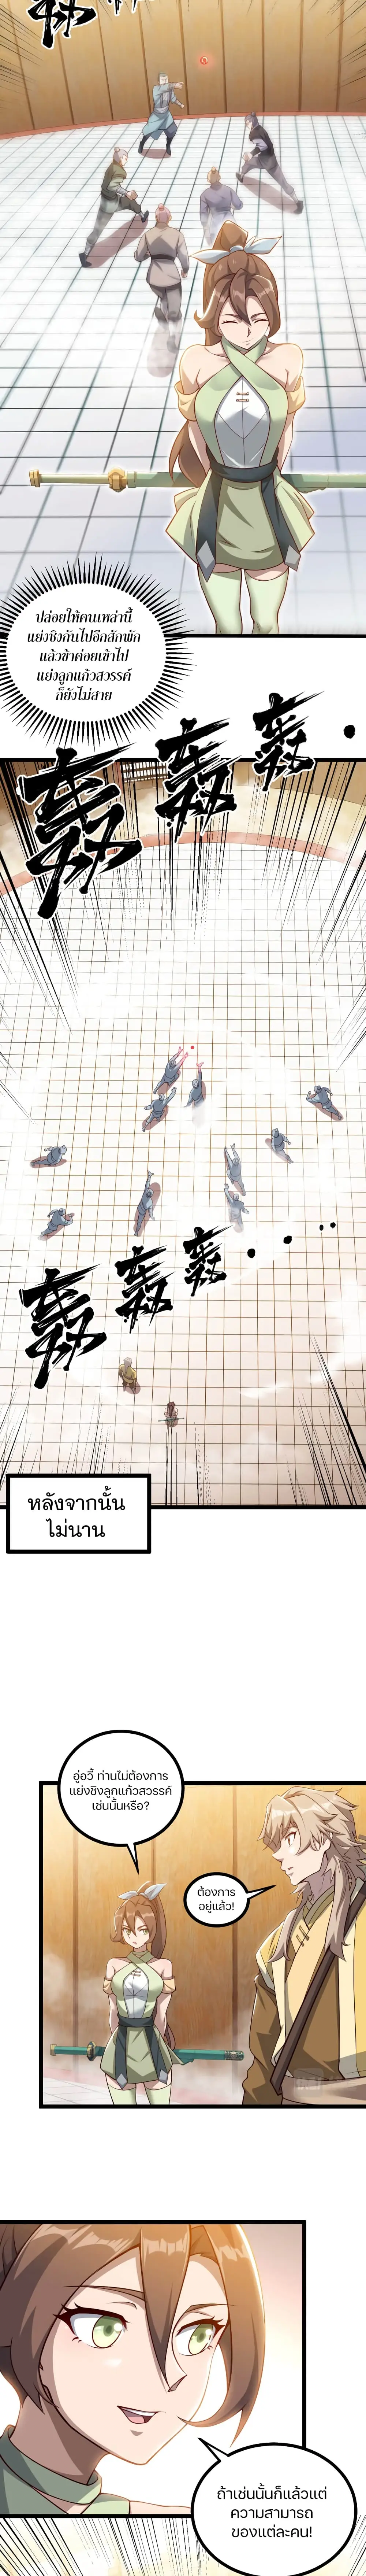 ปล่อยให้คนเหล่านี้
แย่งชิงกันไปอีกสักพัก
แล้วข้าค่อยเข้าไป
แย่งลูกแก้วสวรรค์
ก็ยังไม่สาย
轰
轰
轰
轰
轰
轰
หลังจากนั้น
ไม่นาน
อู่อวี้ ท่านไม่ต้องการ
แย่งชิงลูกแก้วสวรรค์
เช่นนั้นหรือ?
ต้องการ
อยู่แล้ว!
ถ้าเช่นนั้นก็แล้วแต่
ความสามารถ
ของแต่ละคน!